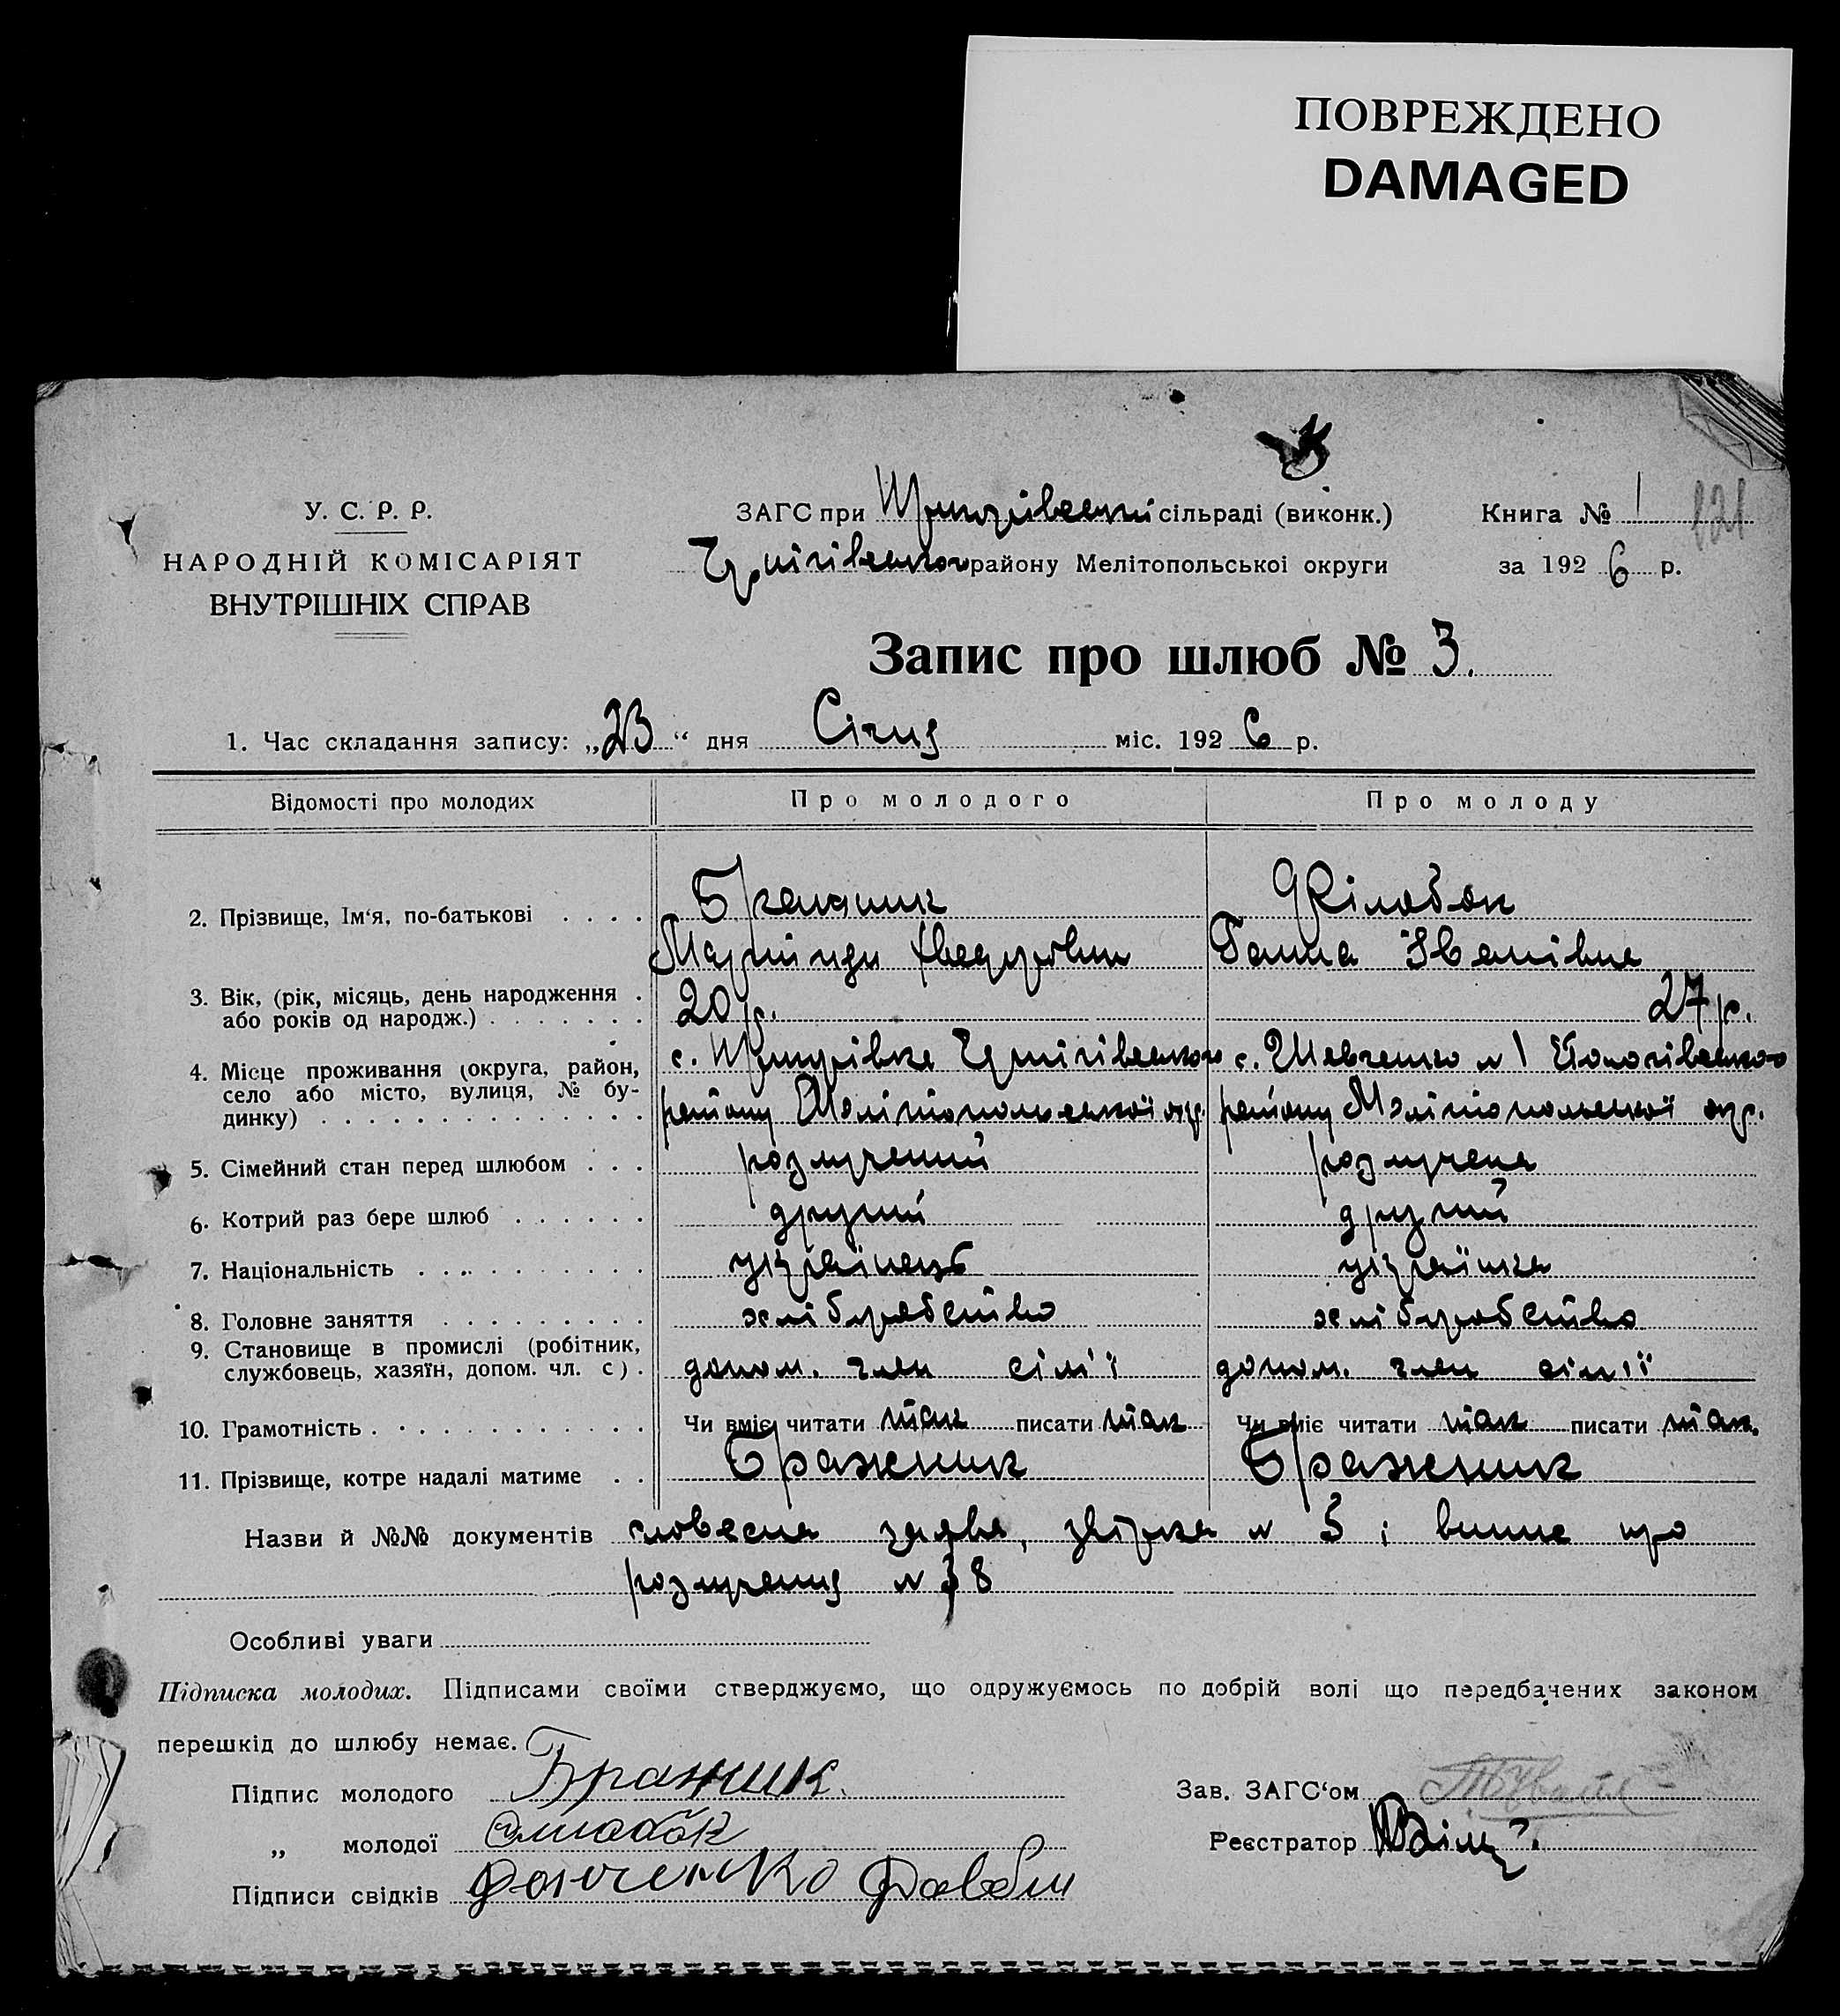 ПОВРЕЖДЕНО
DAMAGED
У. С. Р. Р.
НАРОДНІЙ КОМІСАРІЯТ
ВНУТРІШНІХ СПРАВ
ЗАГС при сільраді (виконк.)
Книга № 1 121
району Мелітопольської округи
за 1926 р.
Запис про шлюб № 3.
1. Час складання запису: „23“ дня Січня міс. 1926 р.
Відомості про молодих Про молодого Про молоду
2. Прізвище, Ім'я, по-батькові Бражник Білобок
Федорович Ганна Іванівна
3. Вік, (рік, місяць, день народження або років од народж.) 20 р. 27 р.
4. Місце проживання (округа, район, село або місто, вулиця, № будинку) с. Чернігівського с. Шевченко № 1 Пологівського
району Мелітопольської окр. району Мелітопольської окр.
5. Сімейний стан перед шлюбом розлучений розлучена
6. Котрий раз бере шлюб другий другий
7. Національність українець українка
8. Головне заняття хліборобство хліборобство
9. Становище в промислі (робітник, службовець, хазяїн, допом. чл. с). допом. член сім'ї допом. член сім'ї
10. Грамотність Чи вміє читати так писати так Чи вміє читати так писати так.
11. Прізвище, котре надалі матиме Бражник Бражник
Назви й №№ документів словесна заява, № 5 і про
розлучення № 38
Особливі уваги
Підписка молодих. Підписами своїми стверджуємо, що одружуємось по добрій волі що передбачених законом
перешкід до шлюбу немає.
Підпис молодого Бражник.
Зав. ЗАГС'ом
„ молодої
Реєстратор
Підписи свідків